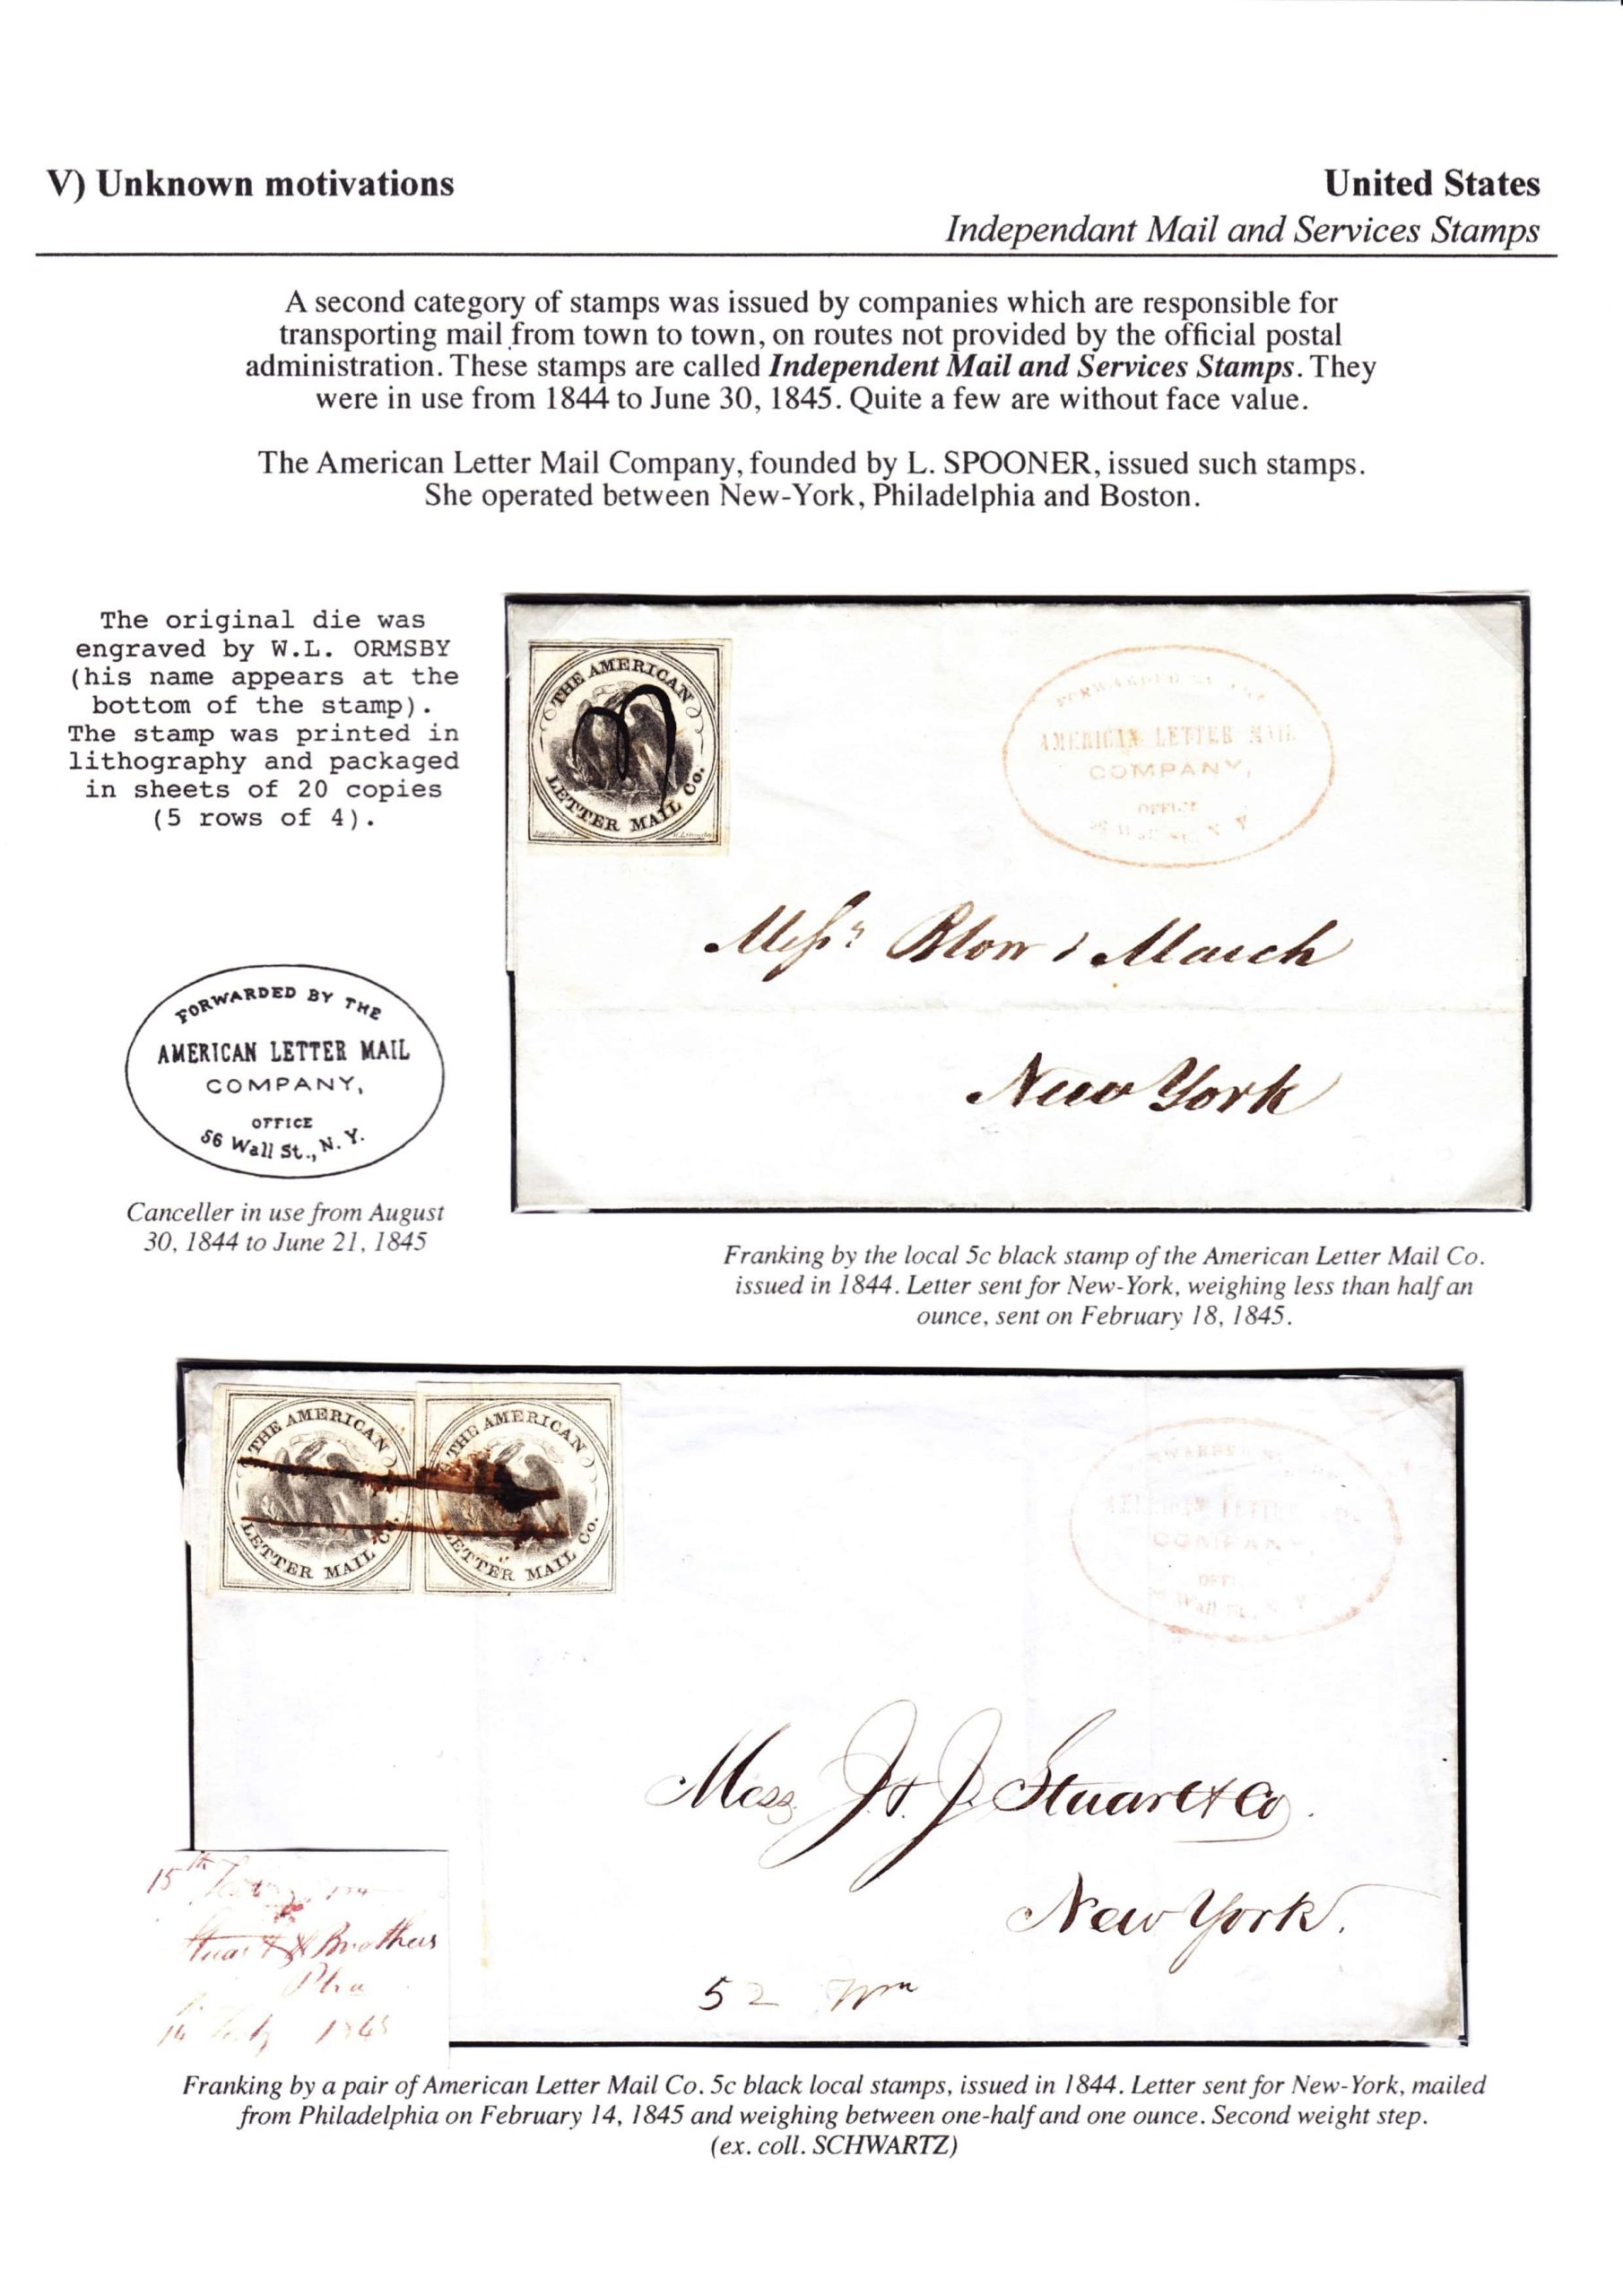 V) Unknown motivations
United States
Independant Mail and Services Stamps
A second category of stamps was issued by companies which are responsible for
transporting mail from town to town, on routes not provided by the official postal
administration. These stamps are called Independent Mail and Services Stamps. They
were in use from 1844 to June 30, 1845. Quite a few are without face value.
The American Letter Mail Company, founded by L. SPOONER, issued such stamps.
She operated between New-York, Philadelphia and Boston.
The original die was
engraved by W.L. ORMSBY
(his name appears at the
bottom of the stamp).
The stamp was printed in
lithography and packaged
in sheets of 20 copies
(5 rows of 4).
THE AMERICAN
LETTER MAIL Co.
FORWARDED BY THE
AMERICAN LETTER MAIL
COMPANY,
OFFICE
56 Wall St., N. Y.
Messrs Blow & March
New York
FORWARDED BY THE
AMERICAN LETTER MAIL
COMPANY,
OFFICE
56 Wall St., N. Y.
Canceller in use from August
30, 1844 to June 21, 1845
Franking by the local 5c black stamp of the American Letter Mail Co.
issued in 1844. Letter sent for New-York, weighing less than half an
ounce, sent on February 18, 1845.
THE AMERICAN
LETTER MAIL Co.
THE AMERICAN
LETTER MAIL Co.
COMPANY,
Wall St.,
Mess J. & J. Stuart & Co.
New York.
52
15th
Stuart & Brothers
Pha
14 1845
Franking by a pair of American Letter Mail Co. 5c black local stamps, issued in 1844. Letter sent for New-York, mailed
from Philadelphia on February 14, 1845 and weighing between one-half and one ounce. Second weight step.
(ex. coll. SCHWARTZ)